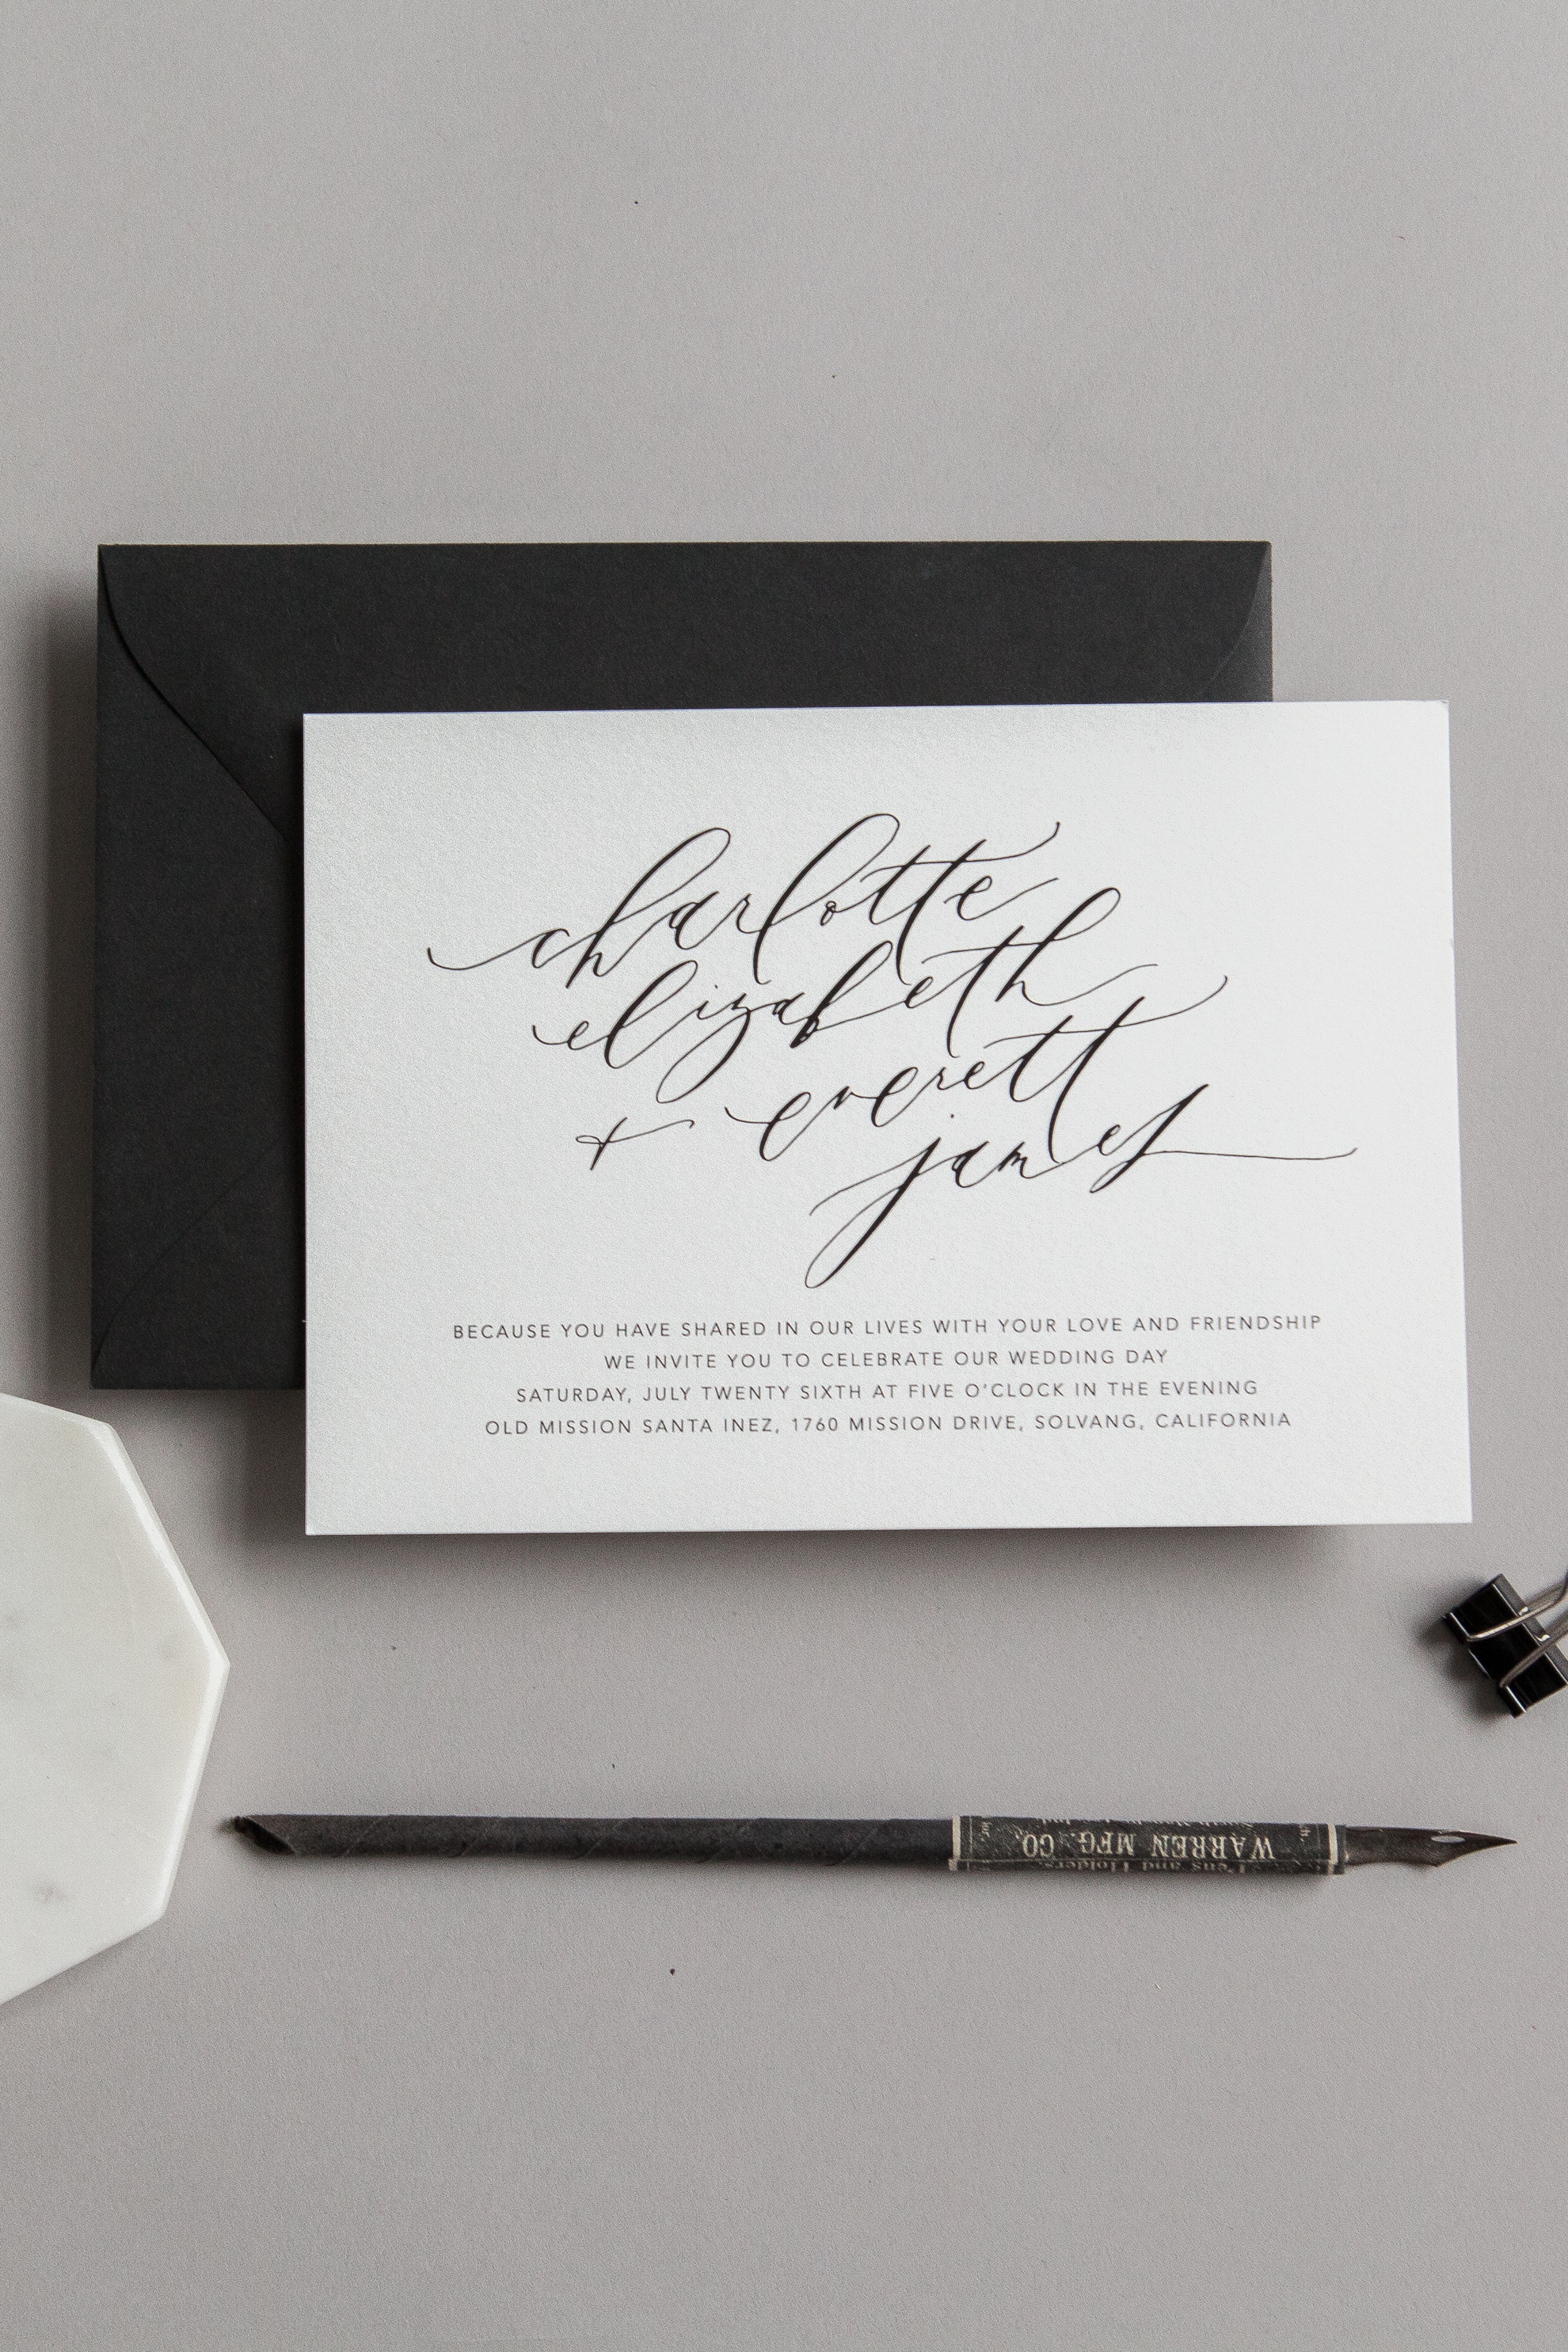 charlotte
elizabeth
+ everett
james
BECAUSE YOU HAVE SHARED IN OUR LIVES WITH YOUR LOVE AND FRIENDSHIP
WE INVITE YOU TO CELEBRATE OUR WEDDING DAY
SATURDAY, JULY TWENTY SIXTH AT FIVE O'CLOCK IN THE EVENING
OLD MISSION SANTA INEZ, 1760 MISSION DRIVE, SOLVANG, CALIFORNIA
Pens and Holders
WARREN MFG. CO.